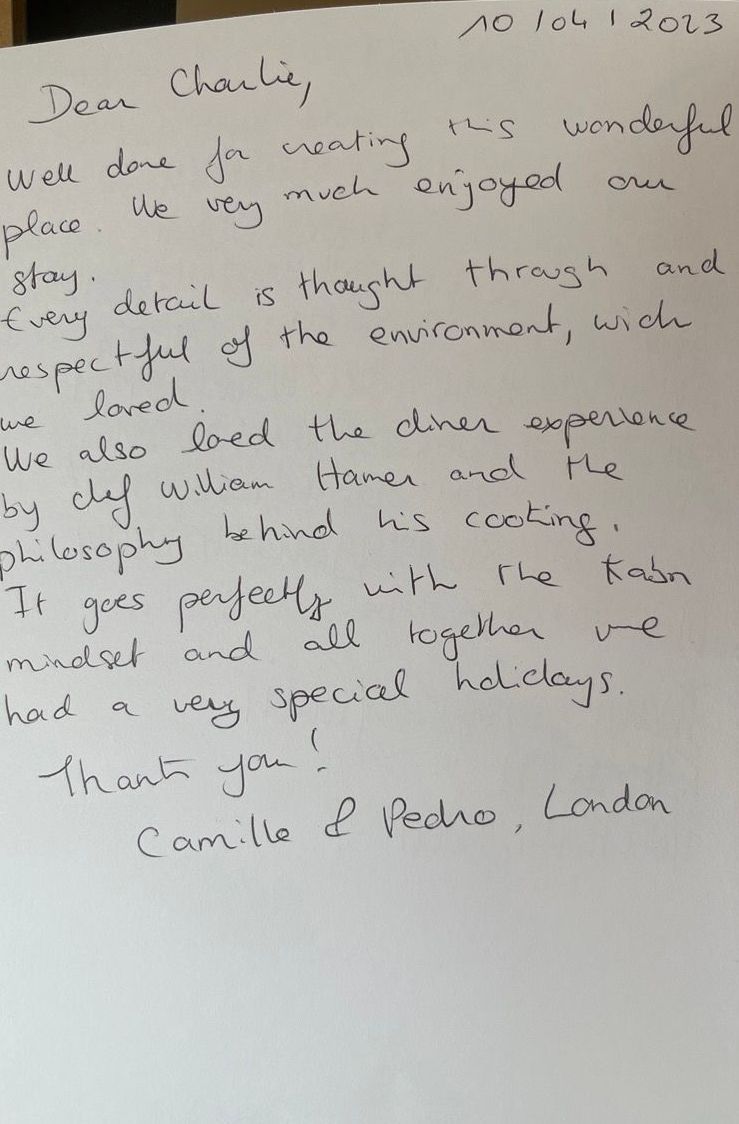 10/04/2023
Dear Charlie,
Well done for creating this wonderful
place. We very much enjoyed our
stay.
Every detail is thought through and
respectful of the environment, wich
we loved.
We also loved the diner experience
by chef William Hamer and the
philosophy behind his cooking.
It goes perfectly with the Kabn
mindset and all together we
had a very special holidays.
Thank you!
Camille & Pedro, London